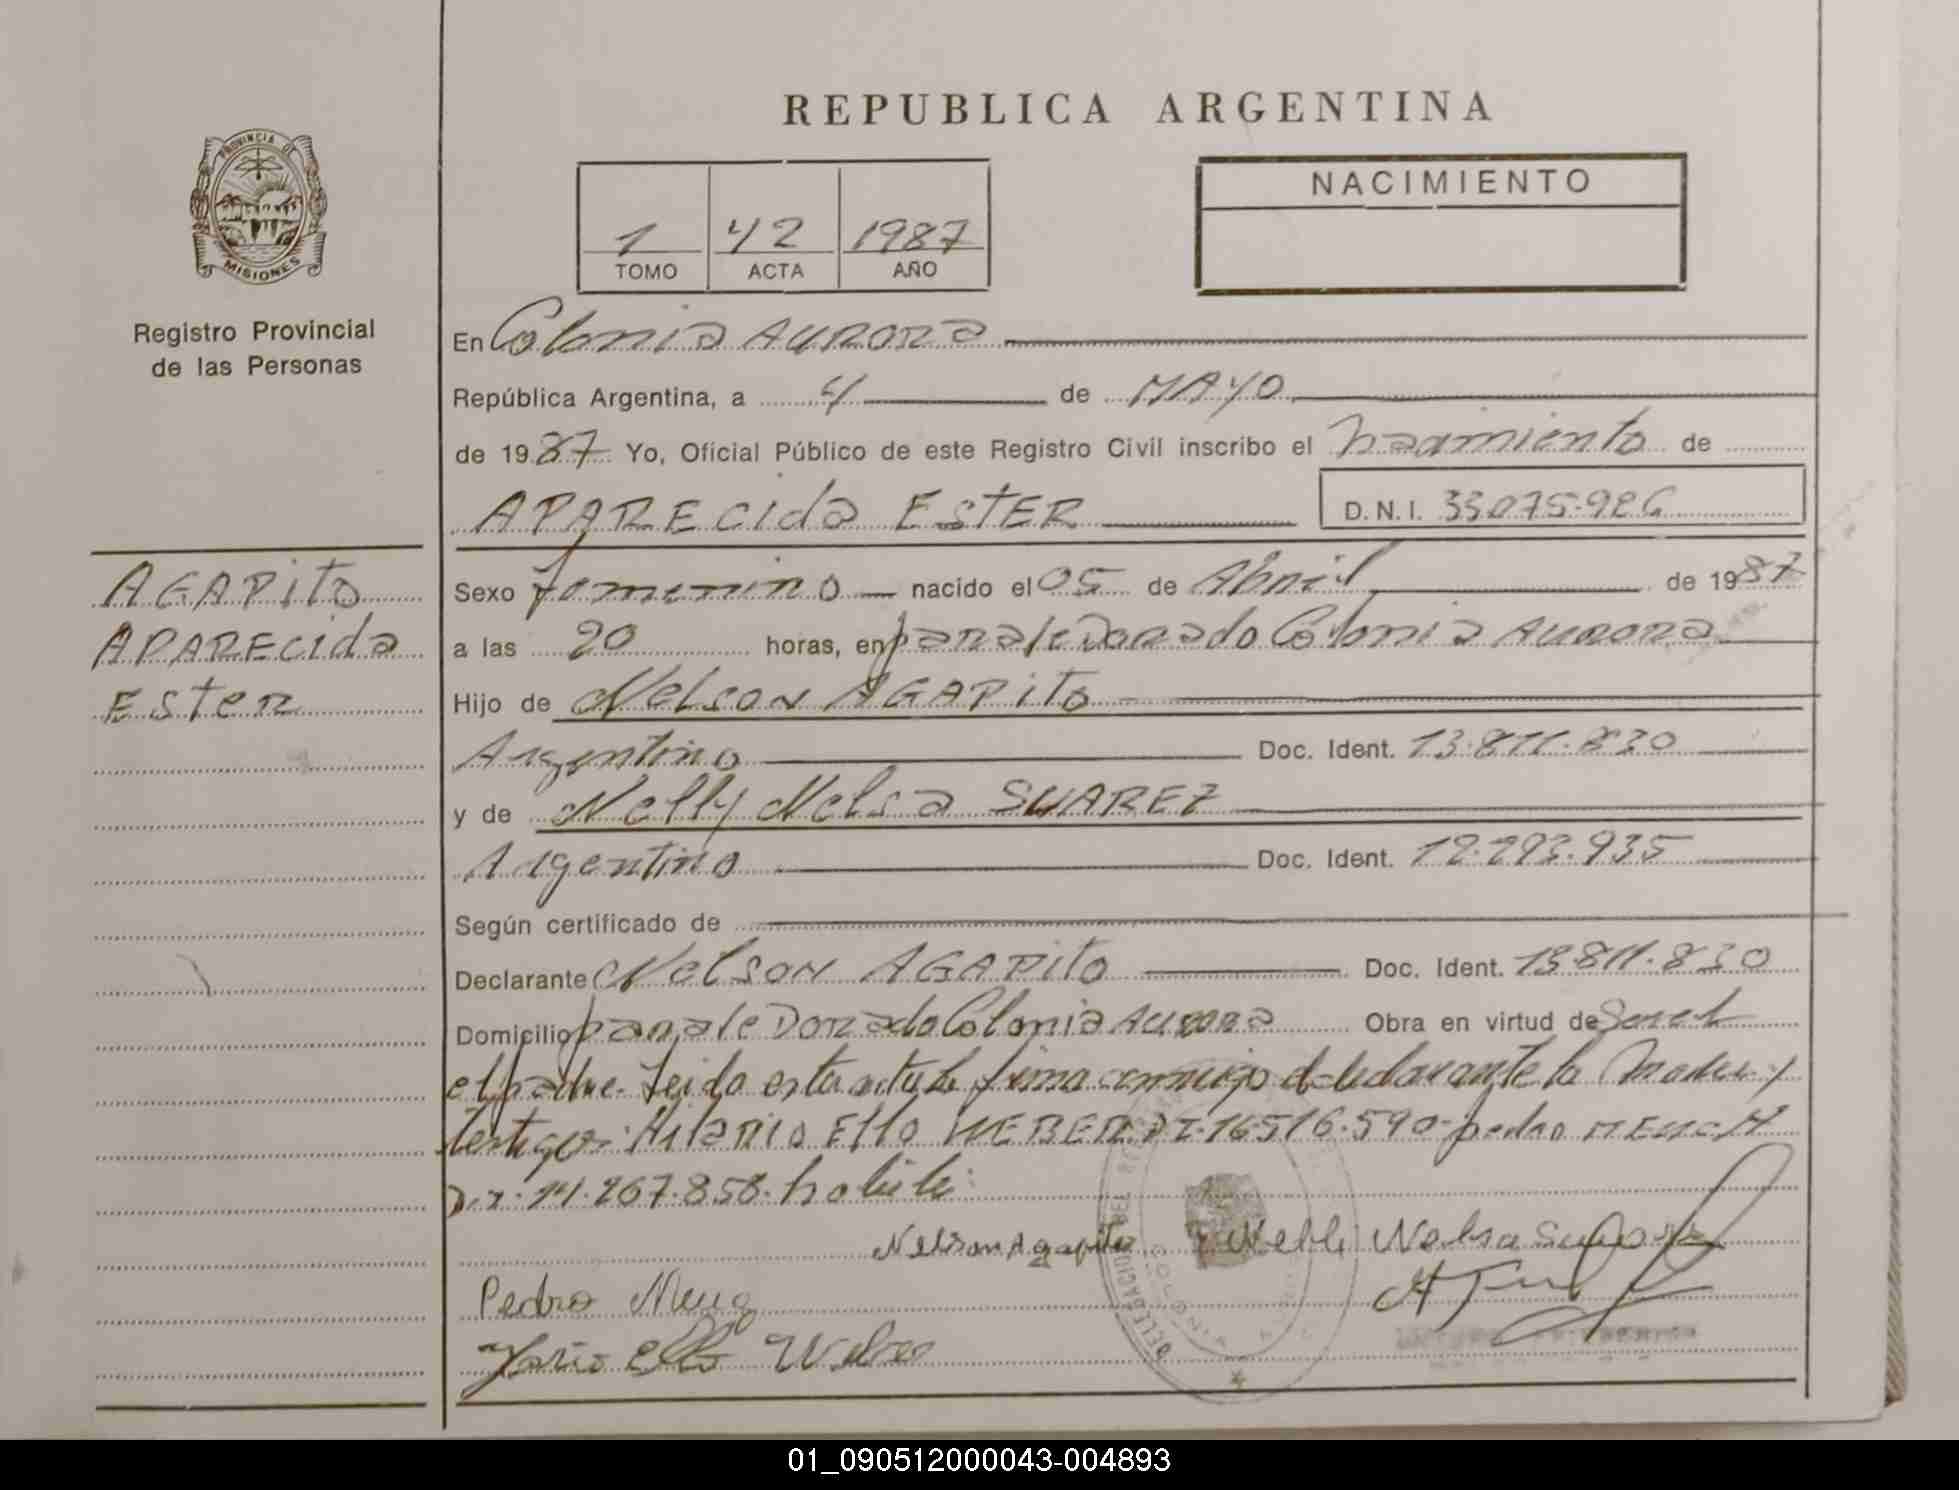 REPUBLICA ARGENTINA
PROVINCIA DE
MISIONES
Registro Provincial
de las Personas
1 42 1987
TOMO ACTA AÑO
NACIMIENTO
En Colonia AURORA
República Argentina, a 4 de MAYO
de 1987 Yo, Oficial Público de este Registro Civil inscribo el nacimiento de
APARECida ESTER
D.N.I. 33075.926
AGAPito
APARECida
ESTER
Sexo femenino nacido el 05 de Abril de 1987
a las 20 horas, en paraje Dorado Colonia AURORA
Hijo de Nelson AGAPito
Argentino Doc. Ident. 13.811.830
y de Nelly Nelsa SUAREZ
Argentino Doc. Ident. 12.293.935
Según certificado de
Declarante Nelson AGAPito Doc. Ident. 13.811.830
Domicilio paraje Dorado Colonia Aurora Obra en virtud de Ser el
el padre. Leida esta acta la firma conmigo el declarante la Madre y
testigos: Hilario Ello WEBER D.I. 16.516.590 pedro
D.I. 14.267.858. habiles
Nelson Agapito Nelli Nelsa
Pedro
Ello Weber
01_090512000043-004893